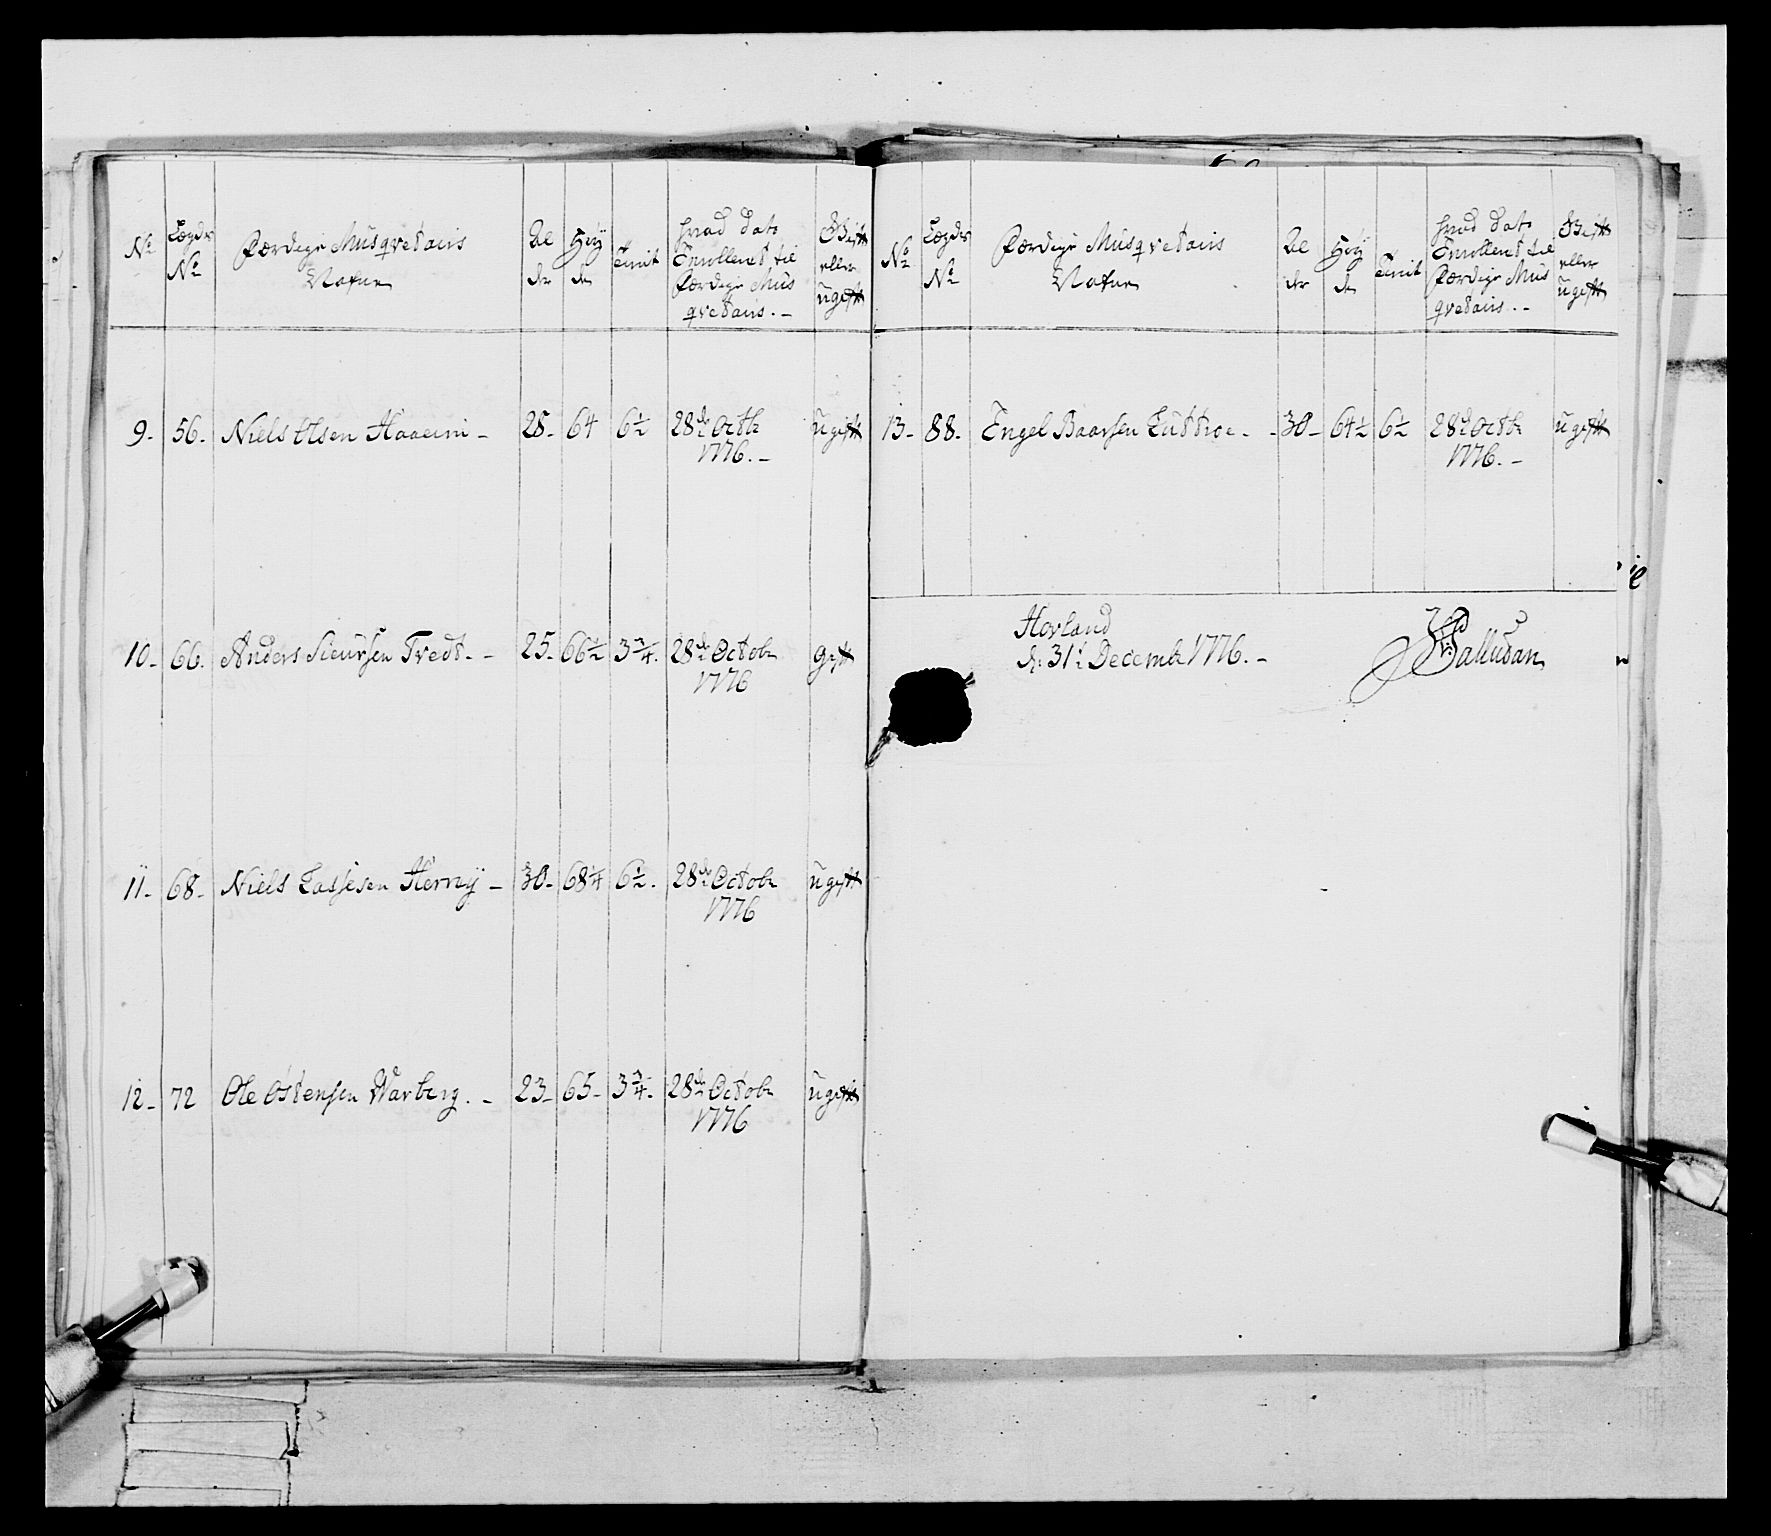 No Lægds No Færdige Musqvetairs Nafne Alder Høyde Termit hvad dato Enrolleret til Færdige Musqvetairs. Gift eller ugift
9. 56. Niels Olsen 28. 64 6½ 28de Octbr 1776. ugift
10. 66. Anders Siursen Tvedt. 25. 66½ 3¾. 28de Octobr 1776 gift
11. 68. Niels Lassesen 30. 68¼ 6½. 28de Octobr 1776 ugift
12. 72 Ole Østensen Warberg. 23. 65. 3¾. 28de Octobr 1776 ugift
No Lægds No Færdige Musqvetairs Nafne Alder Høyde Termit hvad dato Enrolleret til Færdige Musqvetairs. Gift eller ugift
13. 88. Engel Baarsen 30. 64½ 6½ 28de Octbr 1776. ugift
Hovland
d: 31t Decembr 1776.
Palludan